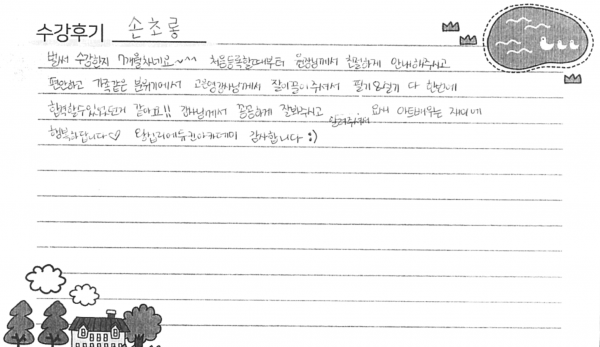 수강후기 손초롱
벌써 수강한지 7개월차네요 ~^^ 처음등록할때부터 원장님께서 친절하게 안내해주시고
편안하고 가족같은 분위기에서 강사님께서 잘이끌어주셔서 필기&실기 다 한번에
합격할수있었던거 같아요!! 강사님께서 꼼꼼하게 잘봐주시고 알려주셔서 요새 아트배우는 재미에
행복하답니다♡ 뷰티아카데미 감사합니다 :)